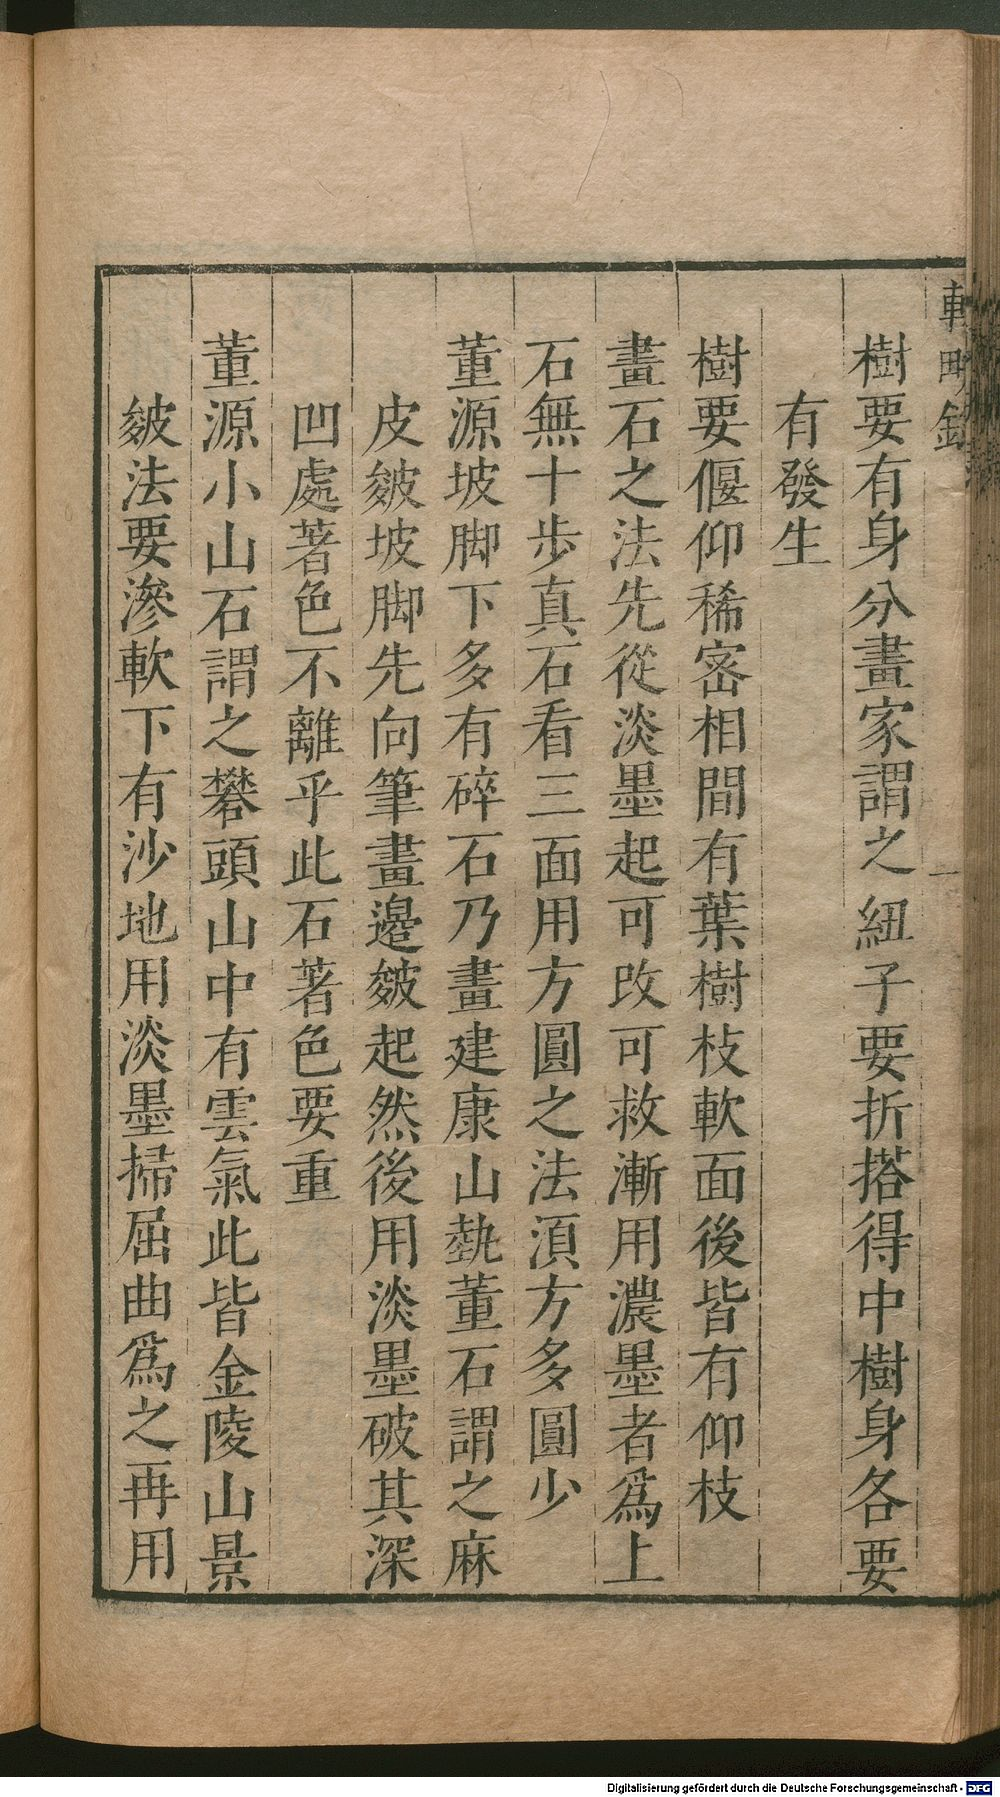 輟畊錄
一
樹要有身分畫家謂之紐子要折搭得中樹身各要
有發生
樹要偃仰稀密相間有葉樹枝軟面後皆有仰枝
畫石之法先從淡墨起可改可救漸用濃墨者爲上
石無十步真石看三面用方圓之法湏方多圓少
董源坡脚下多有碎石乃畫建康山埶董石謂之麻
皮皴坡脚先向筆畫邉皴起然後用淡墨破其深
凹處著色不離乎此石著色要重
董源小山石謂之礬頭山中有雲氣此皆金陵山景
皴法要滲軟下有沙地用淡墨掃屈曲爲之再用
Digitalisierung gefördert durch die Deutsche Forschungsgemeinschaft - DFG